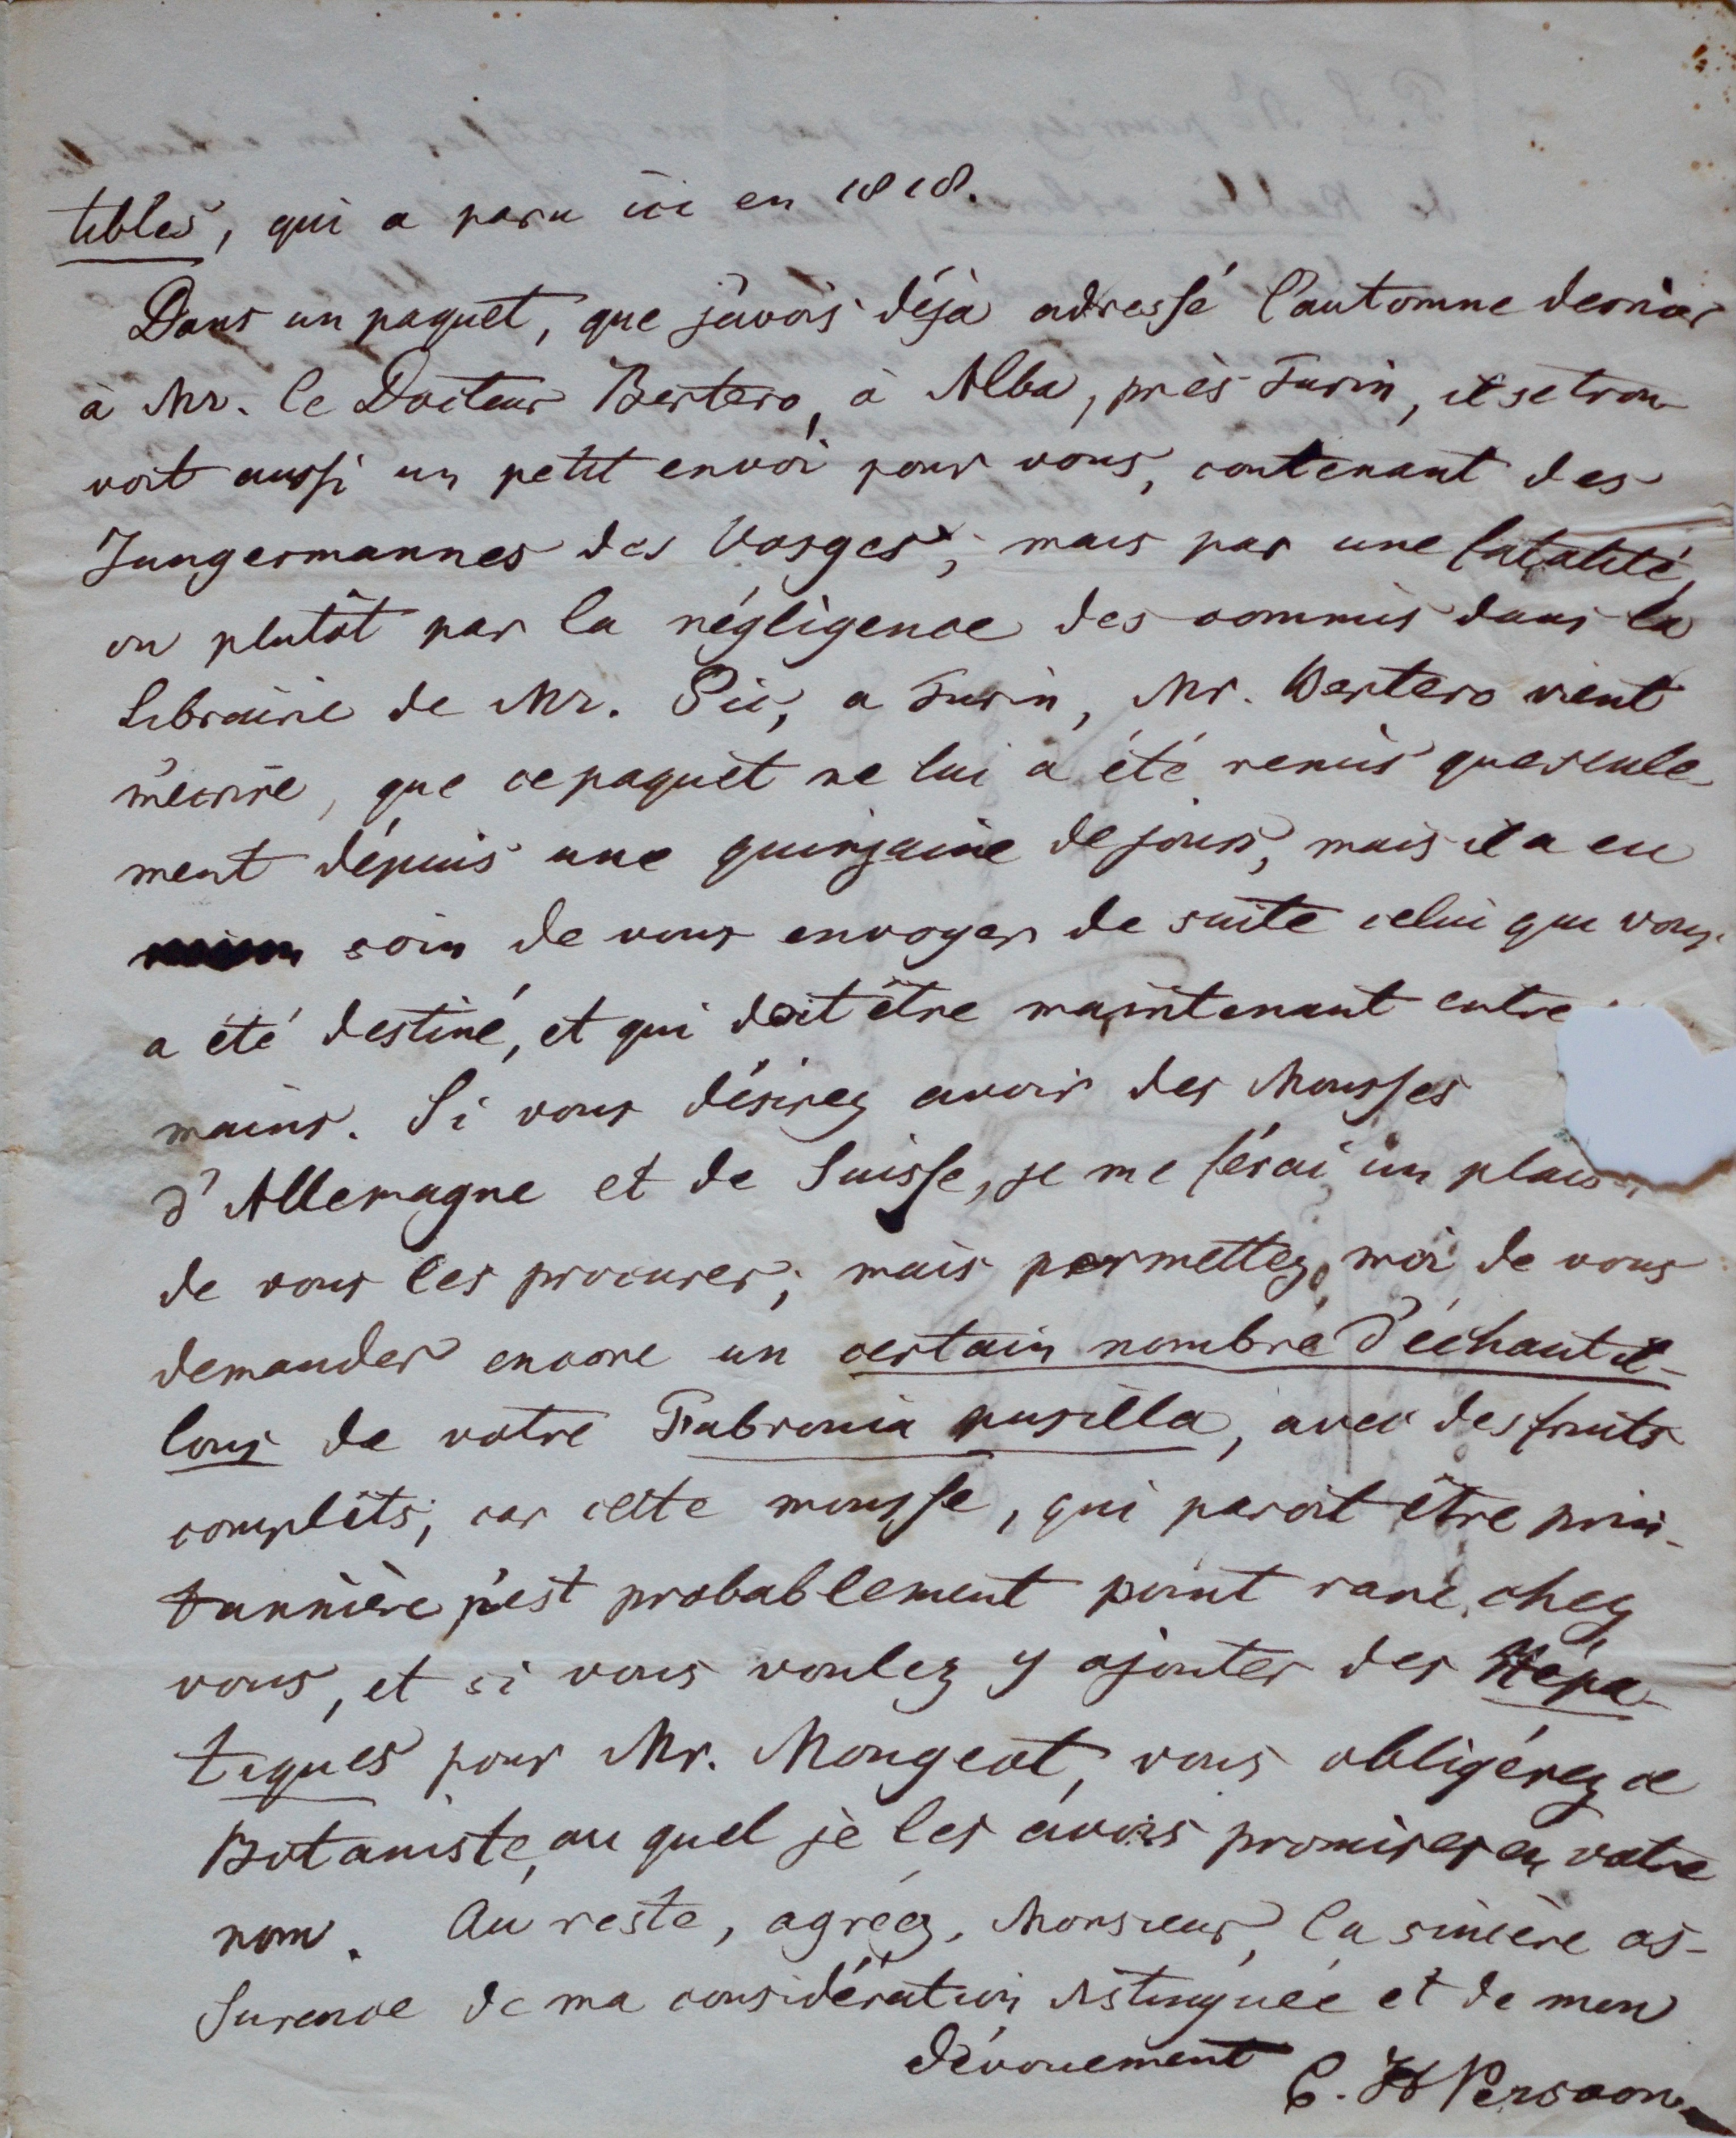 tibles, qui a paru ici en 1818.
Dans un paquet, que j'avois déja adressé l'automne dernier
à Mr. le Docteur Bertero, à Alba, près Turin, il se trou-
voit aussi un petit envoi pour vous, contenant des
Jungermannes des Vosges; mais par une fatalité,
ou plutôt par la négligence des commis dans la
librairie de Mr. Pic, a Turin, Mr. Bertero vient
m'ecrire, que ce paquet ne lui a été remis que seule
ment dépuis une quinzaine de jours, mais il a eu
soin de vous envoyer de suite celui qui vous
a été destiné, et qui doit être maintenant entre
mains. Si vous désirez avoir des Mousses
d'Allemagne et de Suisse, je me férai un plais
de vous les procurer; mais permettez, moi de vous
demander encore un certain nombre d'échantil-
lons de votre Fabronia pusilla, avec des fruits
complèts; car cette mousse, qui paroit être prin-
tannière n'est probablement point rare, chez
vous, et si vous voulez y ajouter des Hépa-
tiques pour Mr. Mougeot, vous obligérez ce
Botaniste, au quel je les avois promises en votre
nom. Au reste, agréez, Monsieur, la sincère as-
surence de ma considération distinguée et de mon
dévouement C. H Persoon